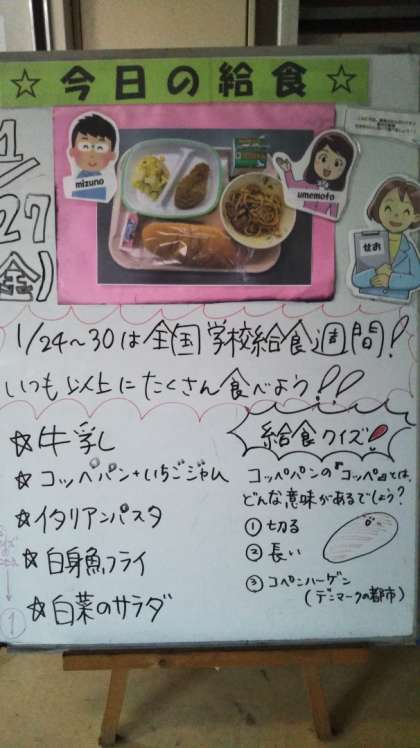 ☆今日の給食☆
1/27(金)
mizuno
umemoto
せお
1/24〜30は全国学校給食週間!
いつも以上にたくさん食べよう!!
☆牛乳
☆コッペパン+いちごジャム
☆イタリアンパスタ
☆白身魚フライ
☆白菜のサラダ
給食クイズ!
コッペパンの『コッペ』とは、
どんな意味があるでしょう?
①切る
②長い
③コペンハーゲン
(デンマークの都市)
①